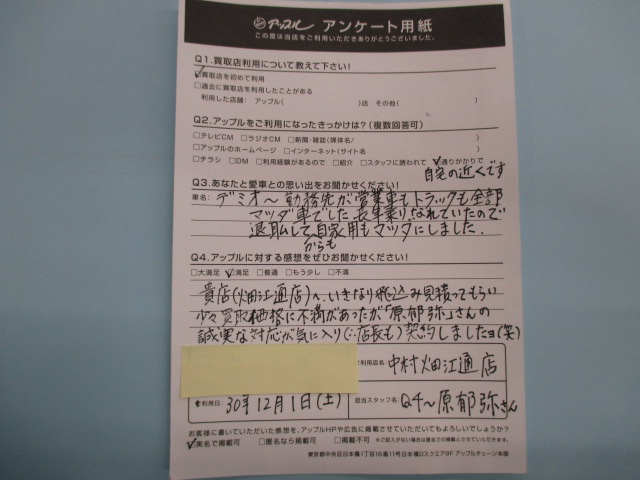 アップル アンケート用紙
この度は当店をご利用いただきありがとうございました。
Q1.買取店利用について教えて下さい!
☑買取店を初めて利用
□過去に買取店を利用したことがある
利用した店舗: アップル( )店 その他( )
Q2.アップルをご利用になったきっかけは?(複数回答可)
□テレビCM □ラジオCM □新聞・雑誌(媒体名/ )
□アップルのホームページ □インターネット(サイト名 )
□チラシ □DM □利用経験があるので □紹介 □スタッフに誘われて ☑通りがかりで
自宅の近くです
Q3.あなたと愛車との思い出をお聞かせください!
車名: デミオ〜勤務先が営業車もトラックも全部
マツダ車でした長年乗りなれていたので
退職して自家用もマツダにしました.
からも
Q4.アップルに対する感想をぜひお聞かせください!
□大満足 ☑満足 □普通 □もう少し □不満
貴店(畑江通店)へ、いきなり飛込み見積ってもらい
少々買取価格に不満があったが「原郁弥」さんの
誠実な対応が気に入り(∵店長も)契約しましたヨ(笑)
ご利用店名: 中村畑江通店
ご利用日: 30年12月1日(土)
担当スタッフ名: Q4〜原郁弥さん
お客様に書いていただいた感想を、アップルHPや広告に掲載させていただいてもよろしいでしょうか?
☑実名で掲載可 □匿名なら掲載可 □掲載不可 ※ご記入がない場合は匿名での掲載とさせていただきます。
東京都中央区日本橋1丁目16番11号日本橋Dスクエア9F アップルチェーン本部